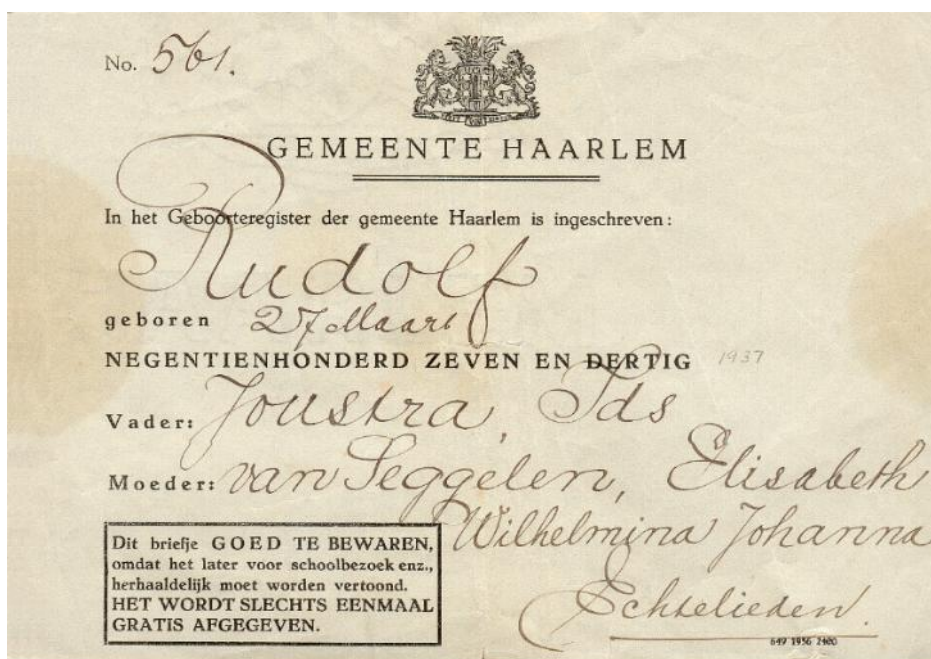 No. 561.
GEMEENTE HAARLEM
In het Geboorteregister der gemeente Haarlem is ingeschreven:
Rudolf
geboren 27 Maart
NEGENTIENHONDERD ZEVEN EN DERTIG 1937
Vader: Joustra, Ids
Moeder: van Seggelen, Elisabeth
Wilhelmina Johanna
Echtelieden.
Dit briefje GOED TE BEWAREN,
omdat het later voor schoolbezoek enz.,
herhaaldelijk moet worden vertoond.
HET WORDT SLECHTS EENMAAL
GRATIS AFGEGEVEN.
649 1936 2400